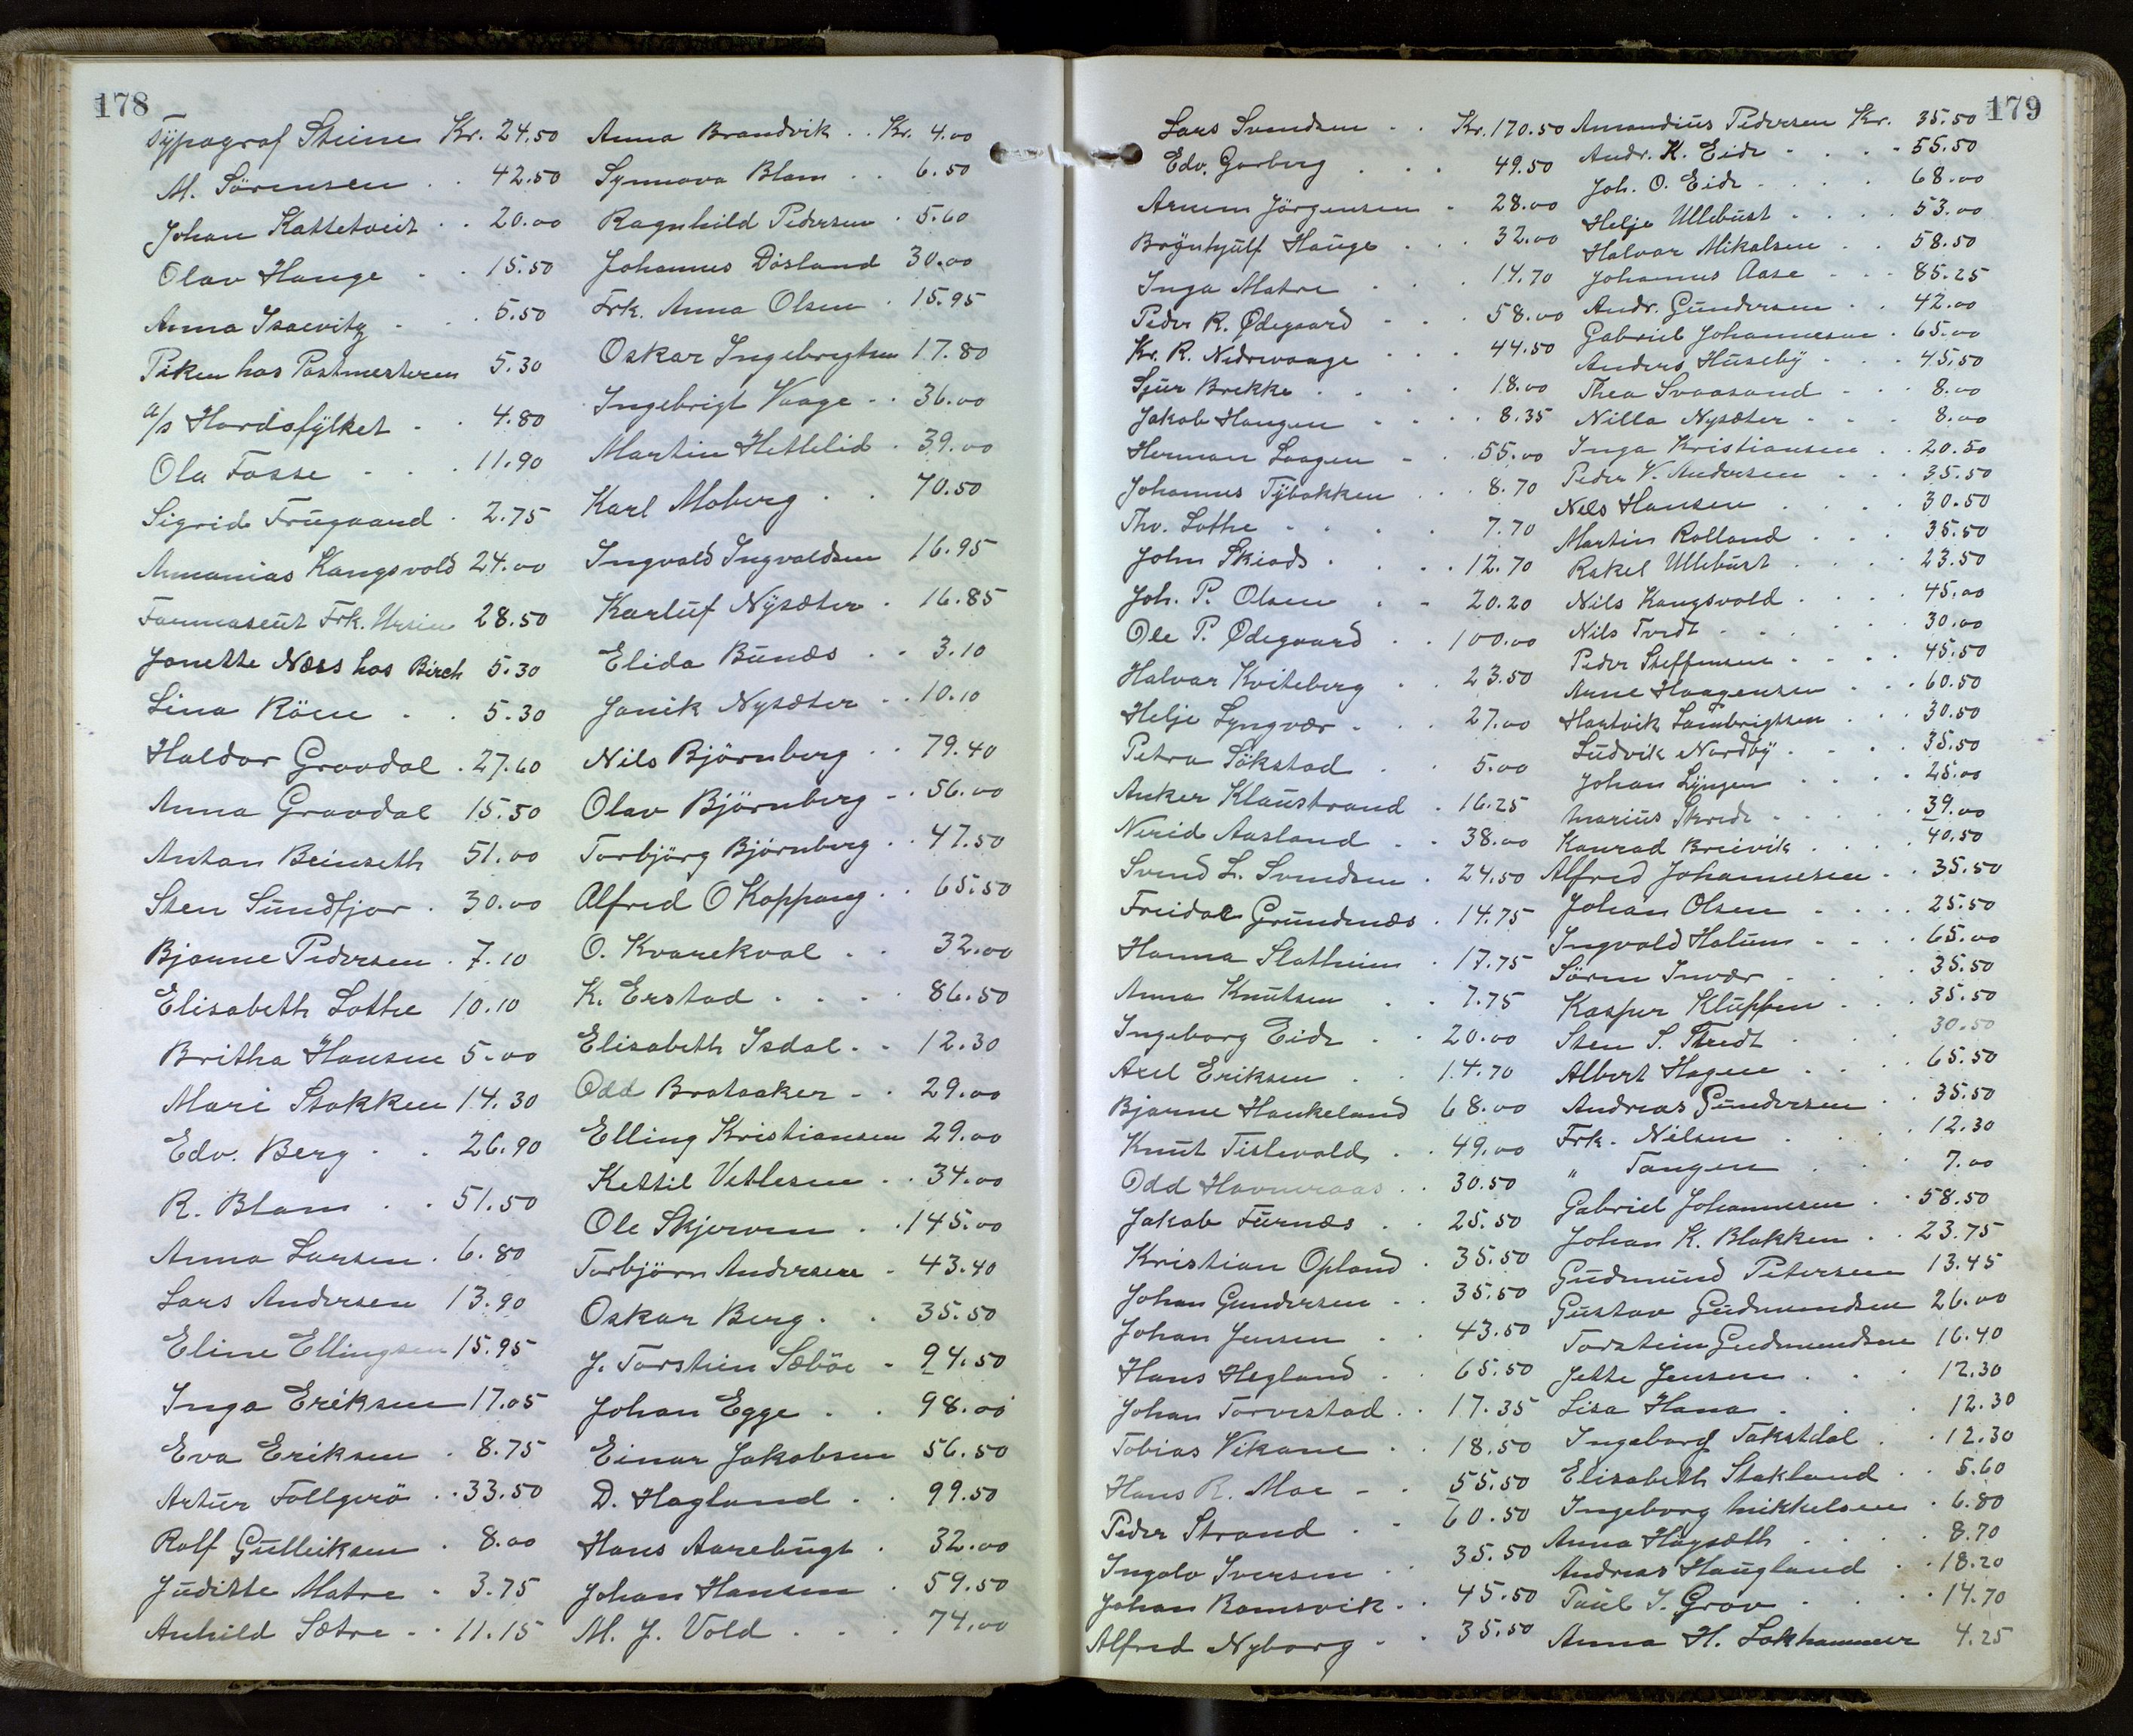 178
Typograf Steine Kr. 24.50
M. Sörensen . . 42.50
Johan Kattetveit . . 20.00
Olav Hauge . . 15.50
Anna Isaevitz . . 5.50
Piken hos Postmesteren 5.30
a/s Hordafylket . . 4.80
Ola Fosse . . . 11.90
Sigrid Frugaard . 2.75
Annanias Kangsvold 24.00
Farmaseut Frk. Ursin 28.50
Janette Næss hos Birch 5.30
Lina Röen . . 5.30
Haldor Gravdal . 27.60
Anna Gravdal 15.50
Anton Beinseth 51.00
Sten Sundfjor . 30.00
Bjarne Pedersen . 7.10
Elisabeth Lothe 10.10
Britha Hansen 5.00
Mari Stokken 14.30
Edv. Berg . . 26.90
R. Blom . . 51.50
Anna Larsen . 6.80
Lars Andersen 13.90
Eline Ellingsen 15.95
Inga Eriksen 17.05
Eva Eriksen . 8.75
Artur Follgerö . . 33.50
Rolf Gulliksen . 8.00
Juditte Matre . 3.75
Anhild Sætre . . 11.15
Anna Brandvik . . Kr. 4.00
Synnøva Blom . . 6.50
Ragnhild Pedersen . 5.60
Johannes Dösland 30.00
Frk. Anna Olsen . 15.95
Oskar Ingebrigtsen 17.80
Ingebrigt Vaage . . 36.00
Martin Hettelid . 39.00
Karl Moberg . . 70.50
Ingvald Ingvaldsen 16.95
Karluf Nysæter . 16.85
Elida Bunæs . . 3.10
Janik Nysæter . . 10.10
Nils Björnberg . . 79.40
Olav Björnberg . . 56.00
Torbjörg Björnberg . . 47.50
Alfred O Koppang . . 65.50
O. Kvarekval . . 32.00
K. Erstad . . . . 86.50
Elisabeth Isdal . . 12.30
Odd Brataaker . . 29.00
Elling Kristiansen 29.00
Kettil Vetlesen . . 34.00
Ole Skjerven . . 145.00
Torbjörn Andersen . 43.40
Oskar Berg . . 35.50
J. Torstein Sæböe . 94.50
Johan Egge . . 98.00
Einar Jakobsen 56.50
D. Hagland . . 99.50
Hans Aarebugt . 32.00
Johan Hansen . 59.50
M. J. Vold . . . 74.00
179
Lars Svendsen . . Kr. 170.50
Edv. Garberg . . . 49.50
Arnem Jörgensen . 28.00
Brynhjulf Hauge . . . 32.00
Inga Matre . . . 14.70
Peder R. Ødegaard . . . 58.00
Kr. R. Nedrevaage . . . 44.50
Sjur Brekke . . . . 18.00
Jakob Haugen . . . . 8.35
Herman Laagen . . 55.00
Johannes Tybakken . . . 8.70
Thv. Lothe . . . . 7.70
John Skiads . . . . 12.70
Joh. P. Olsen . . 20.20
Ole P. Ødegaard . . 100.00
Halvar Kviteberg . . 23.50
Helje Lyngvær . . . 27.00
Petra Sökstad . . 5.00
Anker Klaustrand . 16.25
Nerid Aasland . . 38.00
Svend L. Svendsen . 24.50
Freidar Grundnæs . 14.75
Hanna Slattheim . 17.75
Anna Knutsen . . 7.75
Ingeborg Eide . . 20.00
Axel Eriksen . . 14.70
Bjarne Haukeland 68.00
Knut Tislevold . . 49.00
Odd Havneraas . . 30.50
Jakob Furnæs . . 25.50
Kristian Opland . 35.50
Johan Gundersen . . 35.50
Johan Jensen . . 43.50
Hans Hegland . . 65.50
Johan Torvestad . . 17.35
Tobias Vikane . . 18.50
Hans R. Moe . . 55.50
Peder Strand . . 60.50
Ingolv Iversen . . 35.50
Johan Ramsvik . . 45.50
Alfred Nyborg . . 35.50
Amandius Pedersen Kr. 35.50
Andr. K. Eide . . . . 55.50
Joh. O. Eide . . . . 68.00
Helje Ullebust . . . . 53.00
Halvar Mikalsen . . 58.50
Johannes Aase . . . 85.25
Andr. Gundersen . . 42.00
Gabriel Johannesen . 65.00
Anders Huseby . . . 45.50
Thea Svaasand . . . 8.00
Nilla Nysæter . . . 8.00
Inga Kristiansen . . 20.50
Peder V. Andersen . . . 35.50
Nels Hansen . . . . 30.50
Martin Rolland . . . 35.50
Rakel Ullebust . . . . 23.50
Nils Kangsvold . . . . 45.00
Nils Tvedt . . . . . 30.00
Peder Steffensen . . . . 45.50
Arne Haagensen . . . 60.50
Hartvik Lambrigtsen . . . 30.50
Ludvik Nordby . . . . 35.50
Johan Lyngen . . . . 25.00
Marius Skrede . . . . . 39.00
Konrad Breivik . . . . 40.50
Alfred Johannesen . . 35.50
Johan Olsen . . . . 25.50
Ingvald Halum . . . . 65.00
Sörm Invær . . . . 35.50
Kasper Kluppen . . . 35.50
Sten S. Tvedt . . . 30.50
Albert Hagen . . . . 65.50
Andreas Gundersen . . 35.50
Frk. Nilsen . . . . 12.30
" Tangen . . . 7.00
Gabriel Johannesen . . 58.50
Johan K. Blakken . . 23.75
Gudmund Petersen 13.45
Gustav Gudmundsen 26.00
Torstein Gudmundsen 16.40
Jette Jensen . . . 12.30
Lisa Hana . . . . 12.30
Ingeborg Takstdal . . 12.30
Elisabeth Stakland . . 5.60
Ingeborg Mikkelsen . 6.80
Anna Høgsæth . . . . 8.70
Andreas Haugland . . 18.20
Paul I. Grov . . . . 14.70
Anna H. Lokhammer 4.25